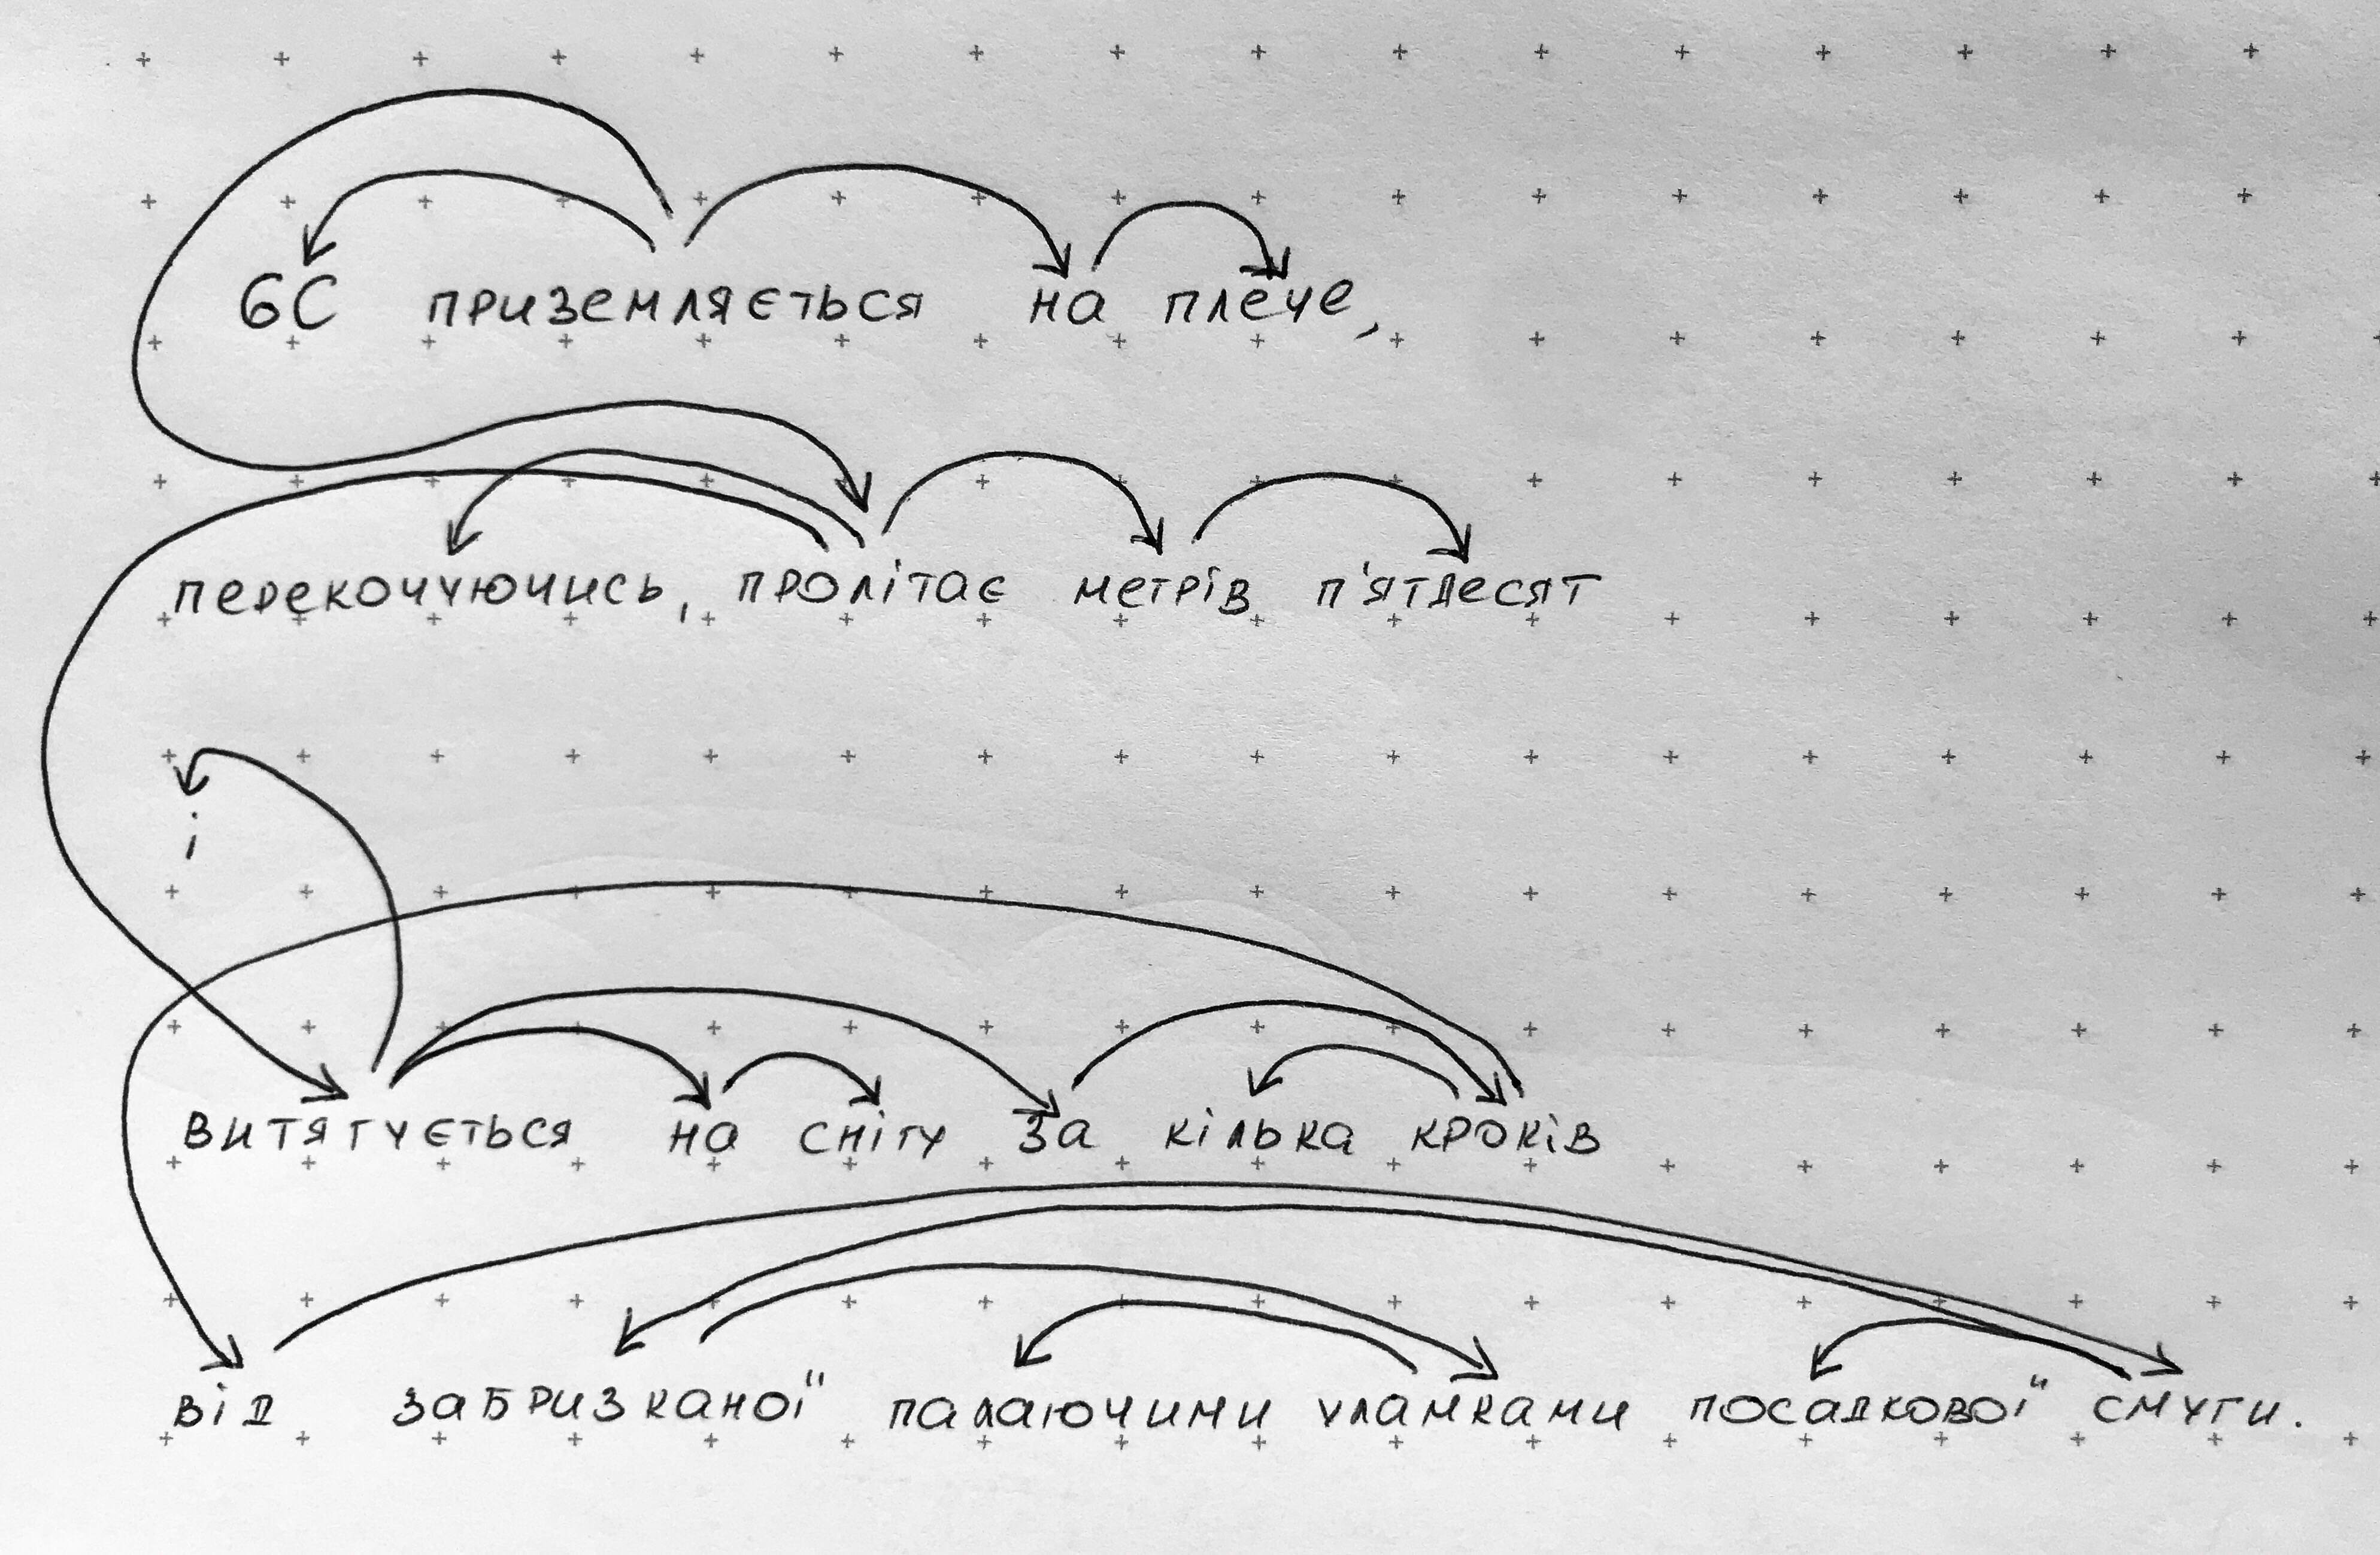 6С приземляється на плече,
перекочуючись, пролітає метрів п'ятдесят
і
витягується на снігу за кілька кроків
від забризканої палаючими уламками посадкової смуги.